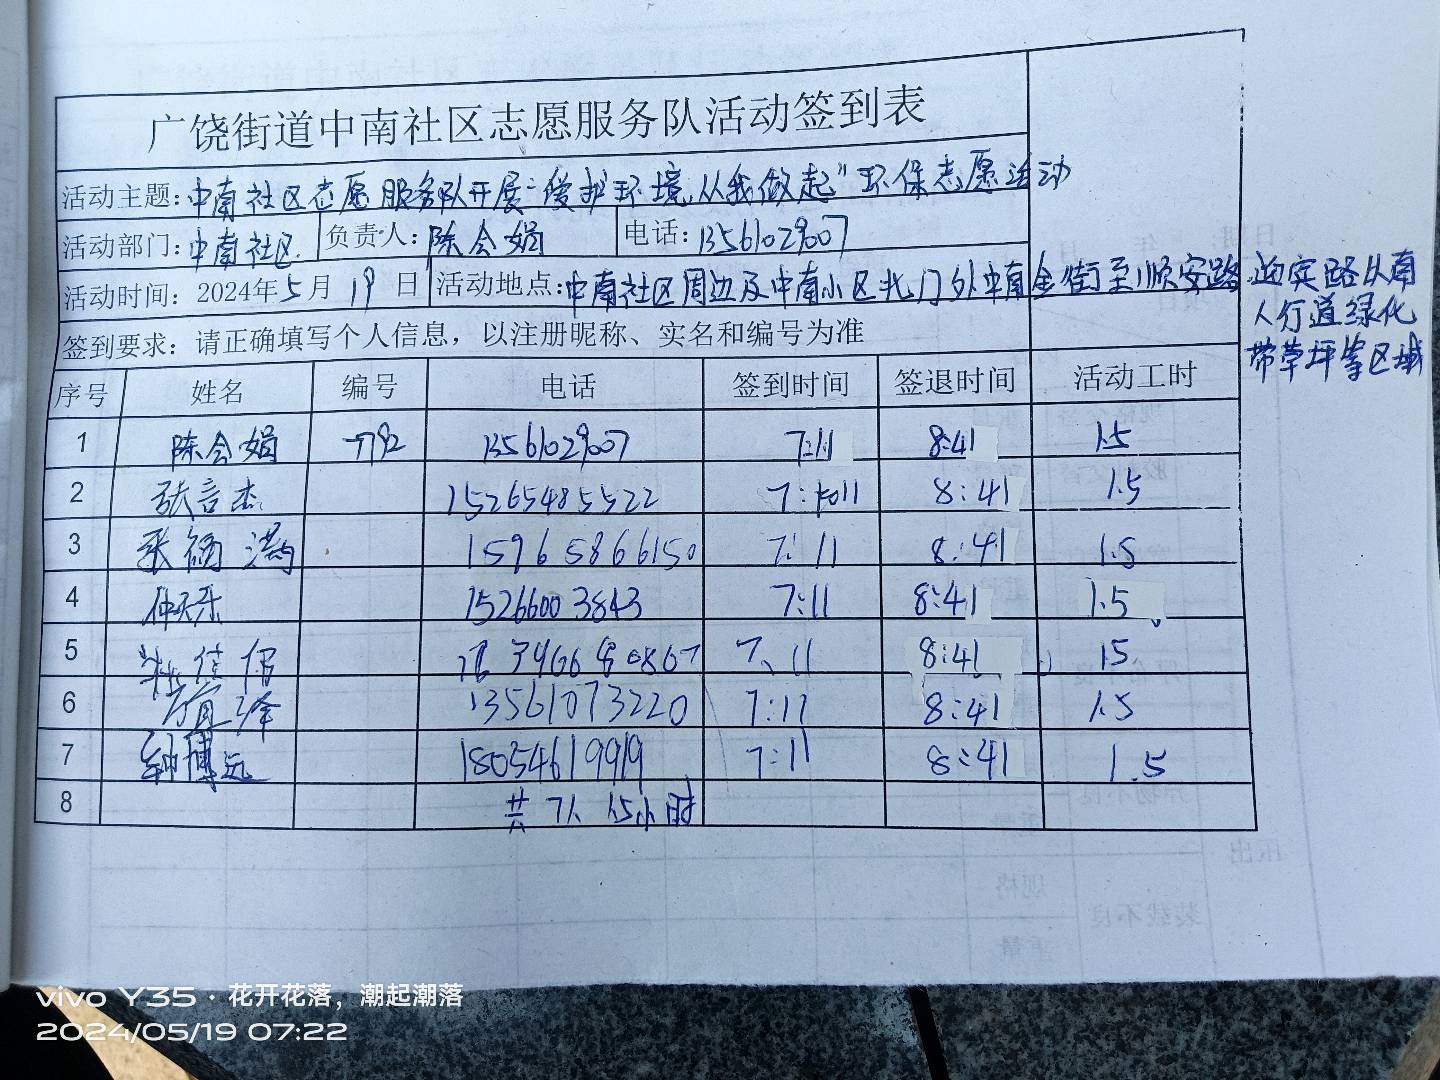 广饶街道中南社区志愿服务队活动签到表
活动主题:中南社区志愿服务队开展“爱护环境,从我做起”环保志愿活动
活动部门:中南社区 负责人:陈会娟 电话:13561029007
活动时间:2024年5月19日 活动地点:中南社区周边及中南小区北门外中南金街至顺安路
迎宾路以南
人行道绿化
带草坪等区域
签到要求:请正确填写个人信息,以注册昵称、实名和编号为准
序号 姓名 编号 电话 签到时间 签退时间 活动工时
1 陈会娟 7792 13561029007 7:11 8:41 1.5
2 张言杰 15265485522 7:11 8:41 1.5
3 张 15965866150 7:11 8:41 1.5
4 仲天乐 15266003843 7:11 8:41 1.5
5 7:11 8:41 1.5
6 13561073220 7:11 8:41 1.5
7 钟博远 18054619919 7:11 8:41 1.5
8 共7人 1.5小时
vivo Y35 · 花开花落,潮起潮落
2024/05/19 07:22